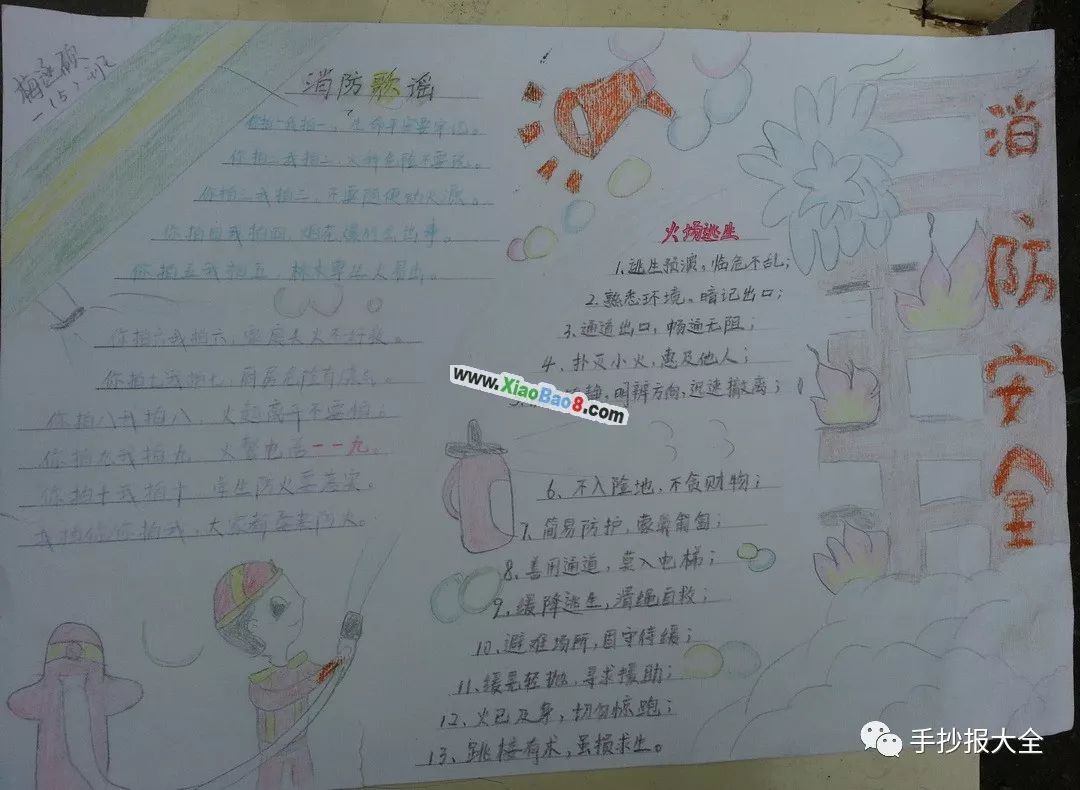 梅 硕
一(5)班
消防歌谣
你拍一我拍一,生命平安要牢记。
你拍二我拍二,火种危险不要玩。
你拍三我拍三,不要随便动火源。
你拍四我拍四,烟花爆竹会出事。
你拍五我拍五,林木草丛火易出。
你拍六我拍六,家庭失火不好救。
你拍七我拍七,厨房危险有煤气。
你拍八我拍八,火起离开不要怕。
你拍九我拍九,火警电话一一九。
你拍十我拍十,学生防火要落实。
我拍你你拍我,大家都要来防火。
火场逃生
1.逃生预演,临危不乱;
2.熟悉环境、暗记出口;
3、通道出口,畅通无阻;
4、扑灭小火,惠及他人;
静,明辨方向,迅速撤离;
6、不入险地,不贪财物;
7、简易防护,蒙鼻匍匐;
8、善用通道,莫入电梯;
9、缓降逃生,滑绳自救;
10、避难场所,固守待缓;
11、缓晃轻抛,寻求援助;
12、火已及身,切勿惊跑;
13、跳楼有术,虽损求生。
消防安全
www.XiaoBao8.com
手抄报大全